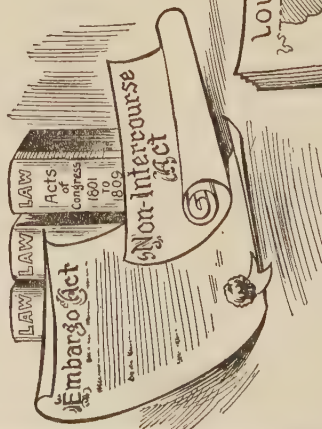 LAW
LAW
LAW
Acts
of
Congress
1801
TO
1809
Embargo Act
Non-Intercourse
Act
LOU